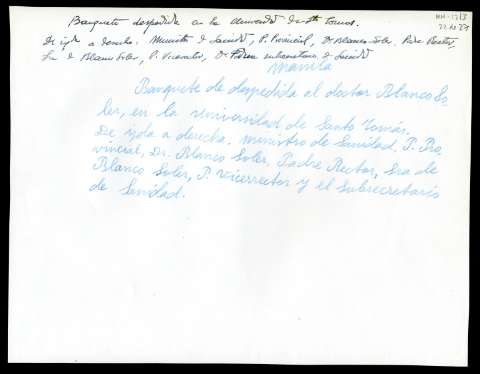 Banquete despedida en la Universidad de Sto Tomas.
De izqda a derecha. Ministro de Sanidad, P. Provincial, Dr Blanco Soler, Padre Rector,
Sra de Blanco Soler, P. Vicerrector, Dr subsecretario de Sanidad
Manila
Banquete de despedida al doctor Blanco So-
ler, en la Universidad de Santo Tomás.
De izqda a derecha. Ministro de Sanidad, P. Pro
vincial, Dr. Blanco Soler, Padre Rector, Sra de
Blanco Soler, P. Vicerrector y el Subsecretario
de Sanidad.